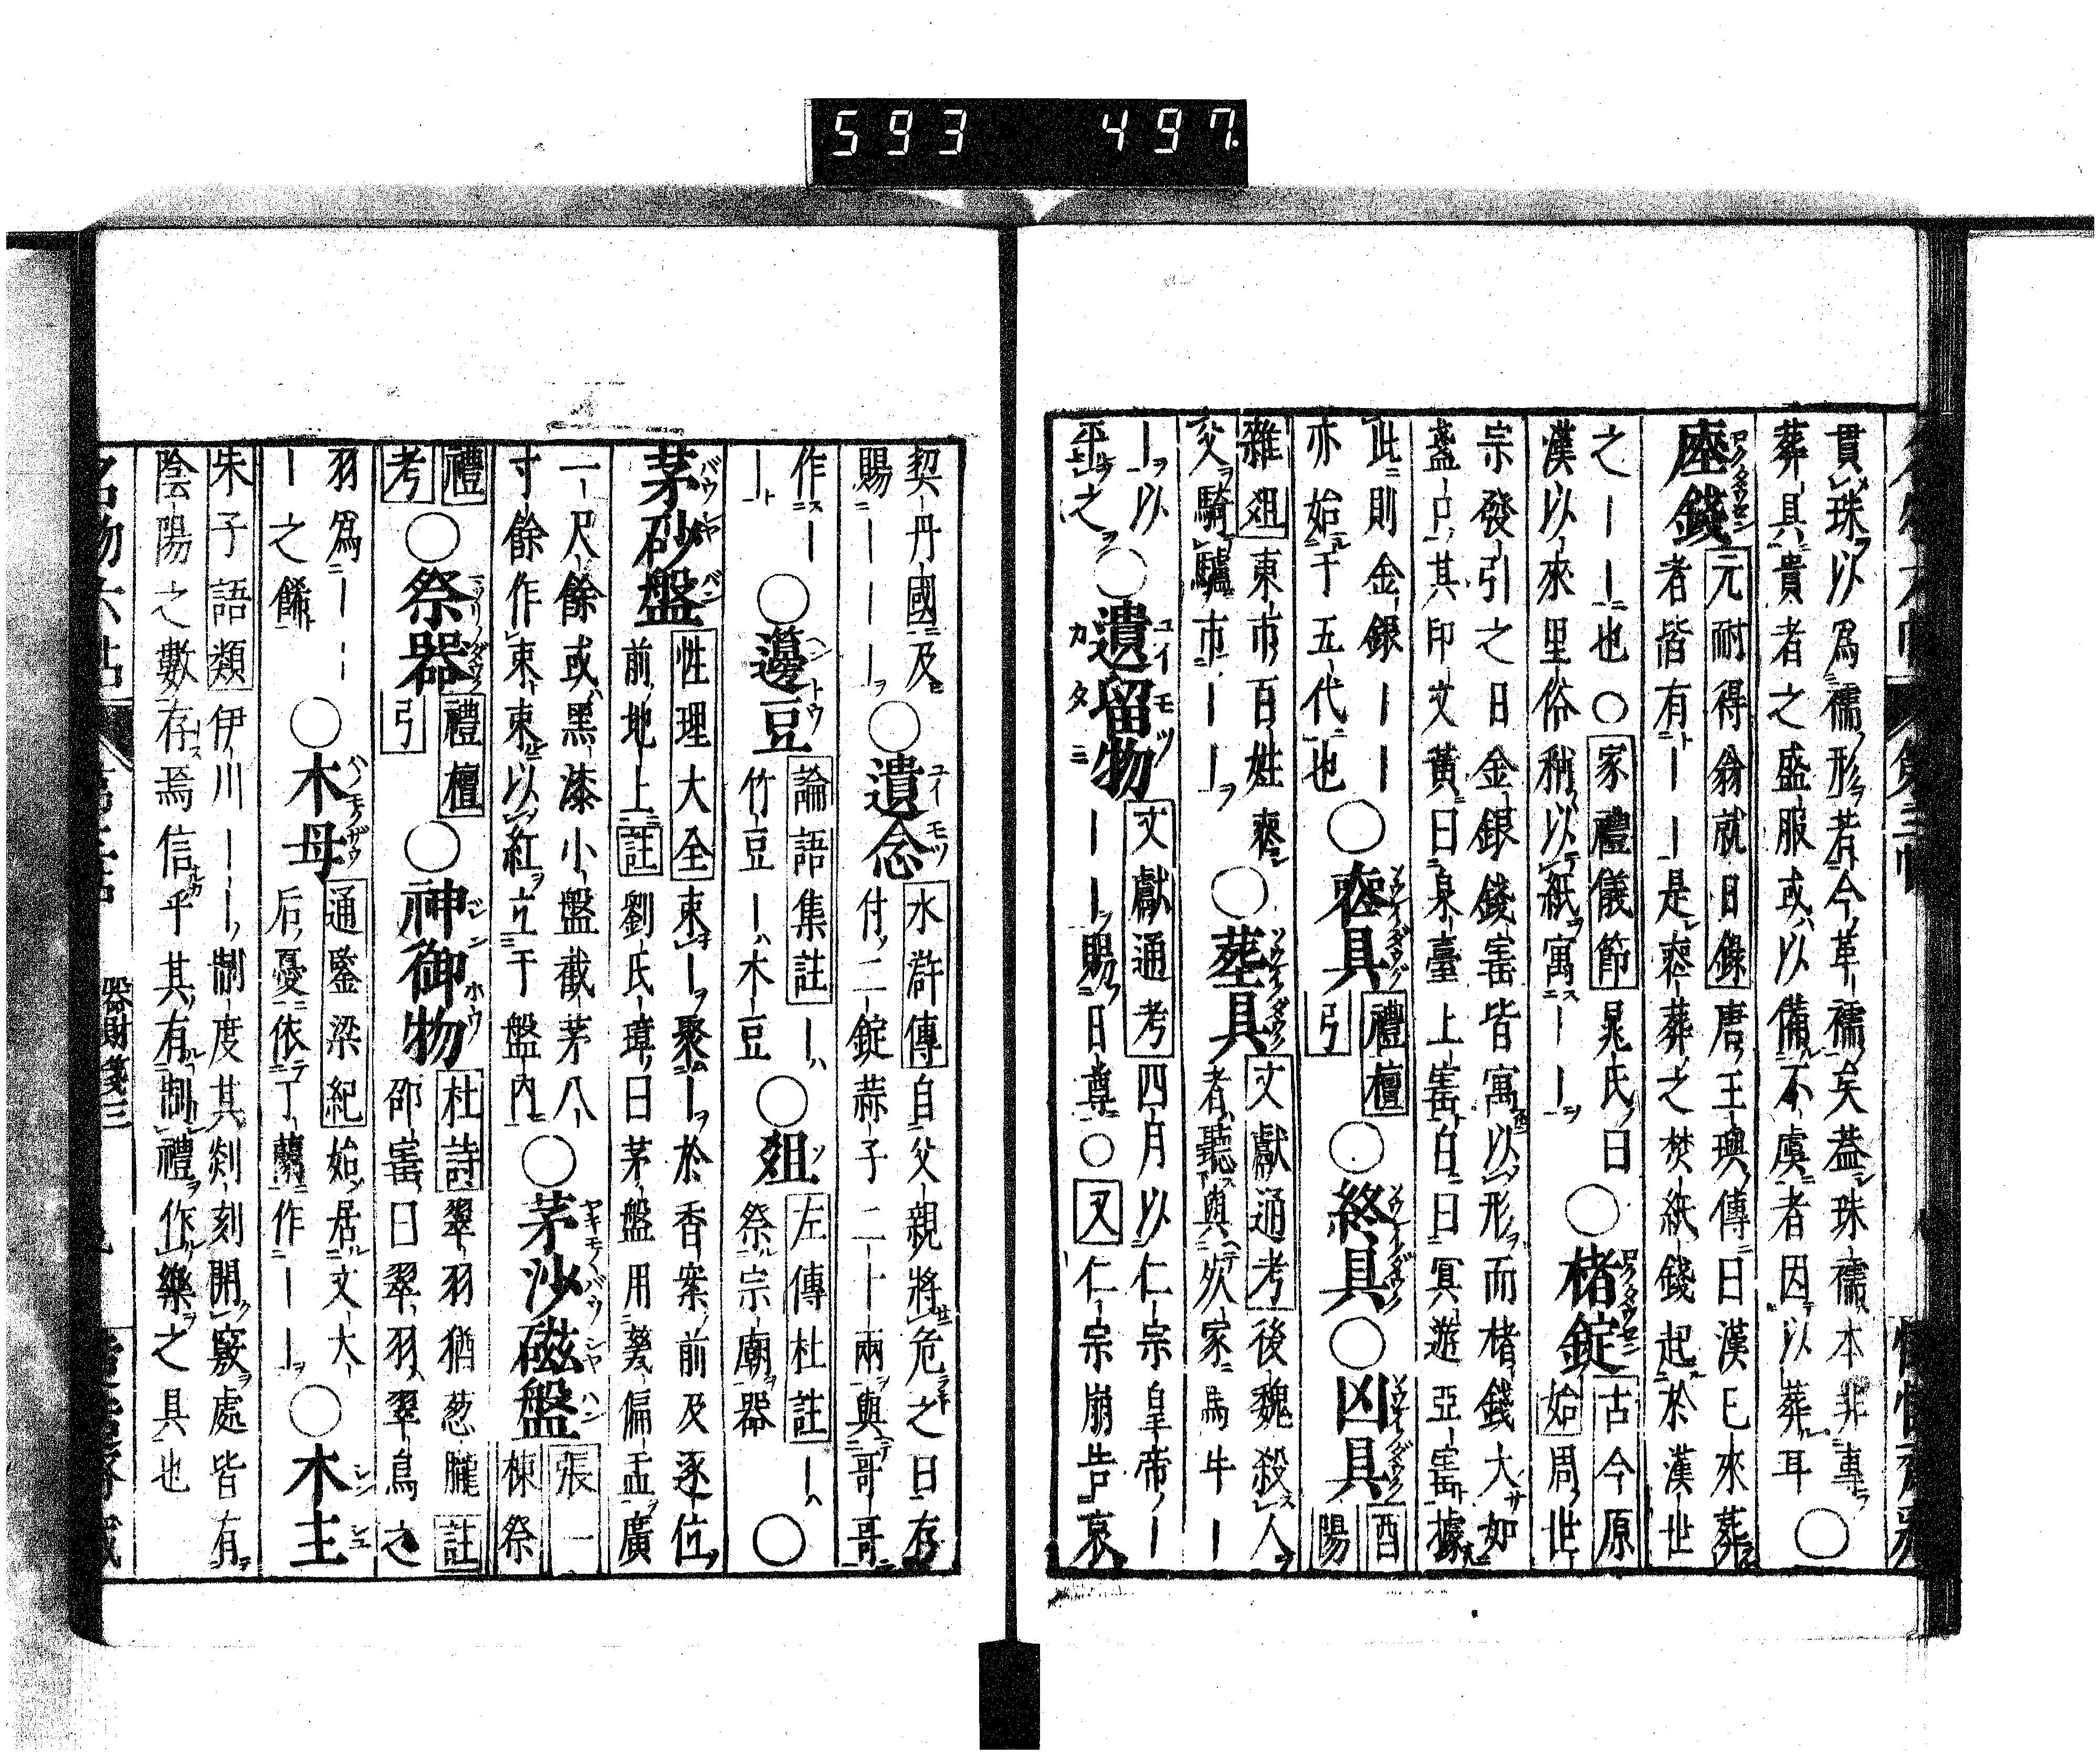 593 497
貫珠以爲襦形若今革襦矣葢珠襦本非專
葬具貴者之盛服或以備不虞者因以葬耳○
瘞錢 元耐得翁就日錄唐王璵傳曰漢已來葬
者皆有一一是喪葬之焚紙錢起於漢世
之一一也○家禮儀節晁氏曰○楮錠古今原
漢以來里俗稍以紙寓一一 始周世
宗發引之日金銀錢寳皆寓以形而楮錢大如
盞口其印文黃曰泉臺上寳白曰冥遊亞寳據
此則金銀一一○喪具禮檀○終具○凶具酉
亦始于五代也 引 陽
雜俎東市百姓喪○葬具文獻通考後魏殺人
父騎驢市一一 者聽與死家馬牛一
一以○遺留物文獻通考四月以仁宗皇帝一
カタミ 一一賜日尊○又仁宗崩告哀
契丹國及○遺念水滸傳自父親將危之日存
賜一一一 付二錠蒜子二十兩與哥哥
作一○籩豆論語集註一○俎左傳杜註一○
一 竹豆一木豆 祭宗廟器
茅砂盤性理大全束一聚一於香案前及逐位
前地上註劉氏璋曰茅盤用甆偏盂廣
一尺餘或黑漆小盤截茅八○茅沙磁盤張一
寸餘作束束以紅立于盤内 棟祭
禮○祭器禮檀○神御物杜詩翠羽猶葱朧註
考 引 邵寳曰翠羽翠鳥之
羽爲一一○木母通鑒梁紀始居文大○木主
一之餙 后憂依丁蘭作一一
朱子語類伊川一一制度其剡刻開竅處皆有
陰陽之數存焉信乎其有制禮作樂之具也
器財箋三